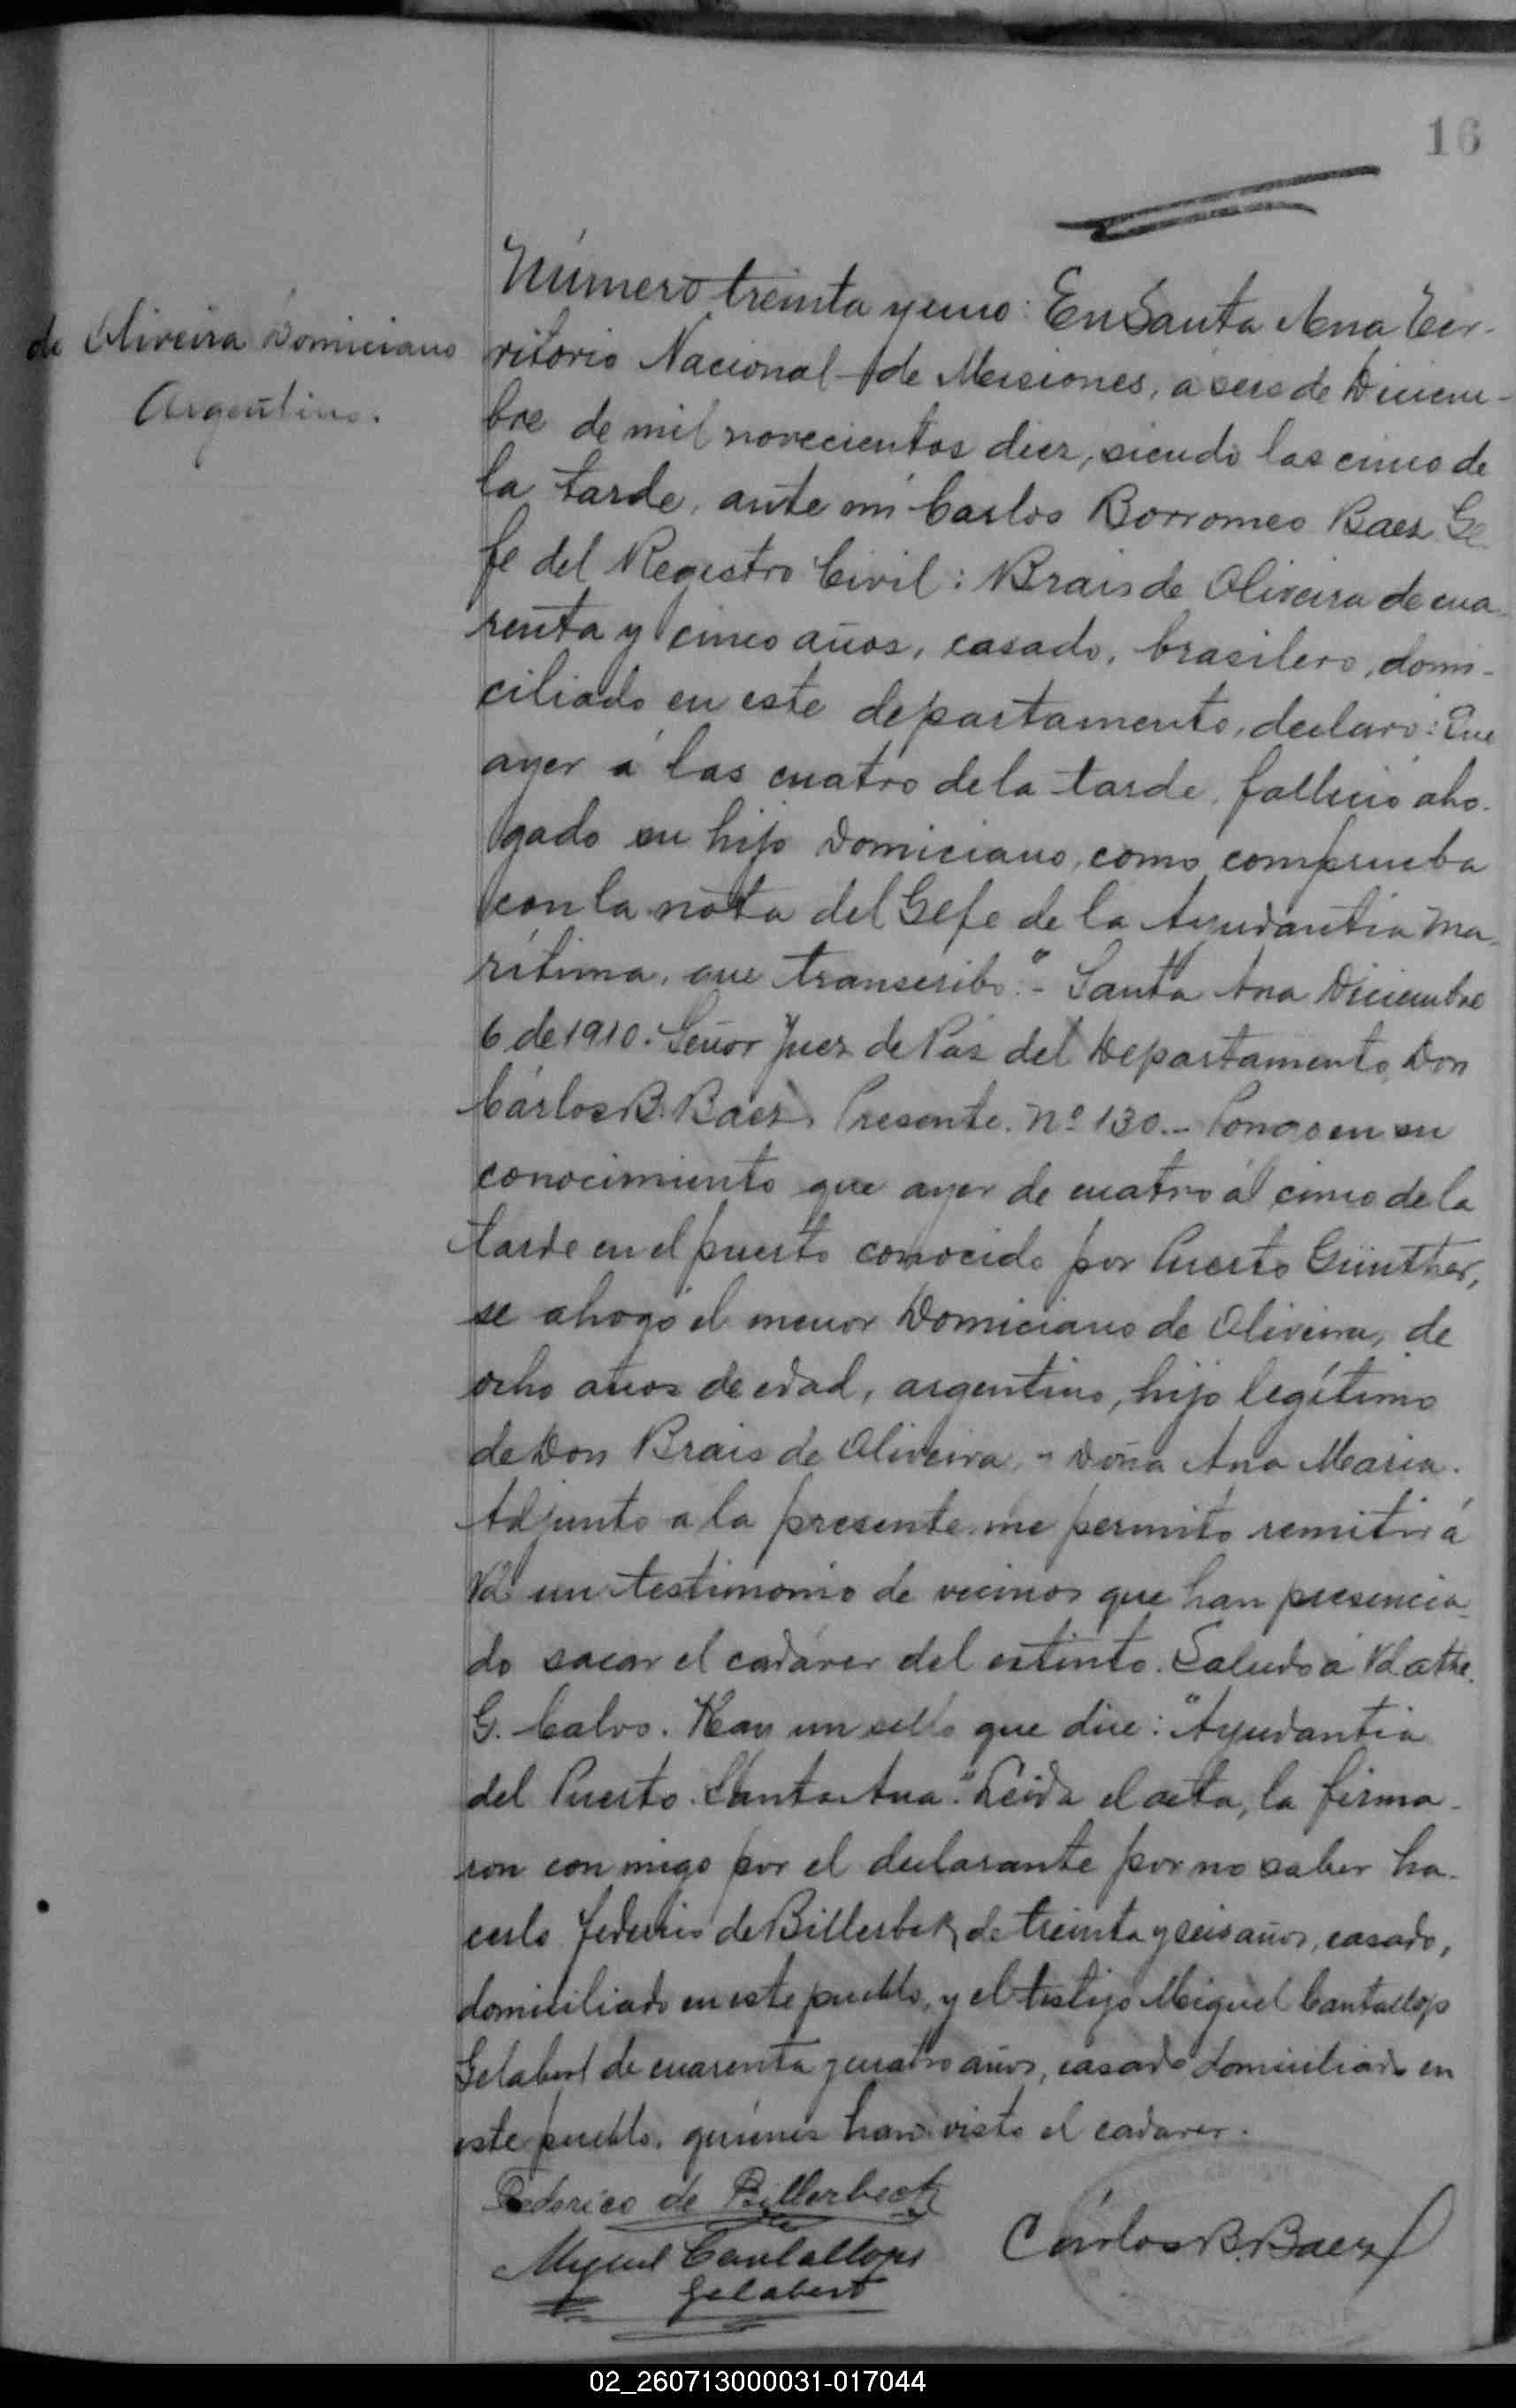 16
de Oliveira Domiciano
Argentino.
Número treinta y uno: En Santa Ana Ter-
ritorio Nacional de Misiones, á seis de Diciem-
bre de mil novecientos diez, siendo las cinco de
la tarde, ante mí Carlos Borromeo Baez Ge
fe del Registro Civil: Brais de Oliveira de cua-
renta y cinco años, casado, brasilero, domi-
ciliado en este departamento, declaró: Que
ayer á las cuatro de la tarde, falleció aho-
gado su hijo Domiciano, como comprueba
con la nota del Gefe de la Ayudantia Ma-
rítima, que transcribo: "- Santa Ana Diciembre
6 de 1910. Señor Juez de Paz del Departamento Don
Cárlos B. Baez. Presente. Nº 130.- Pongo en su
conocimiento que ayer de cuatro á cinco de la
tarde en el puerto conocido por Puerto Günther,
se ahogó el menor Domiciano de Oliveira, de
ocho años de edad, argentino, hijo legítimo
de Don Brais de Oliveira, y Doña Ana Maria.
Adjunto a la presente me permito remitir á
Vd. un testimonio de vecinos que han presencia-
do sacar el cadáver del estinto. Saludo á Vd. atte.
G. Calvo. Hay un sello que dice: "Ayudantia
del Puerto. Santa Ana." Leida el acta, la firma-
ron con migo por el declarante por no saber ha-
cerlo Federico de Billerbek, de treinta y seis años, casado,
domiciliado en este pueblo, y el testigo Miguel Cantallops
Gelabert de cuarenta y cuatro años, casado domiciliado en
este pueblo, quienes han visto el cadaver.
Federico de Billerbeck
Miguel Cantallops
Gelabert
Cárlos B. Baez
02_260713000031-017044